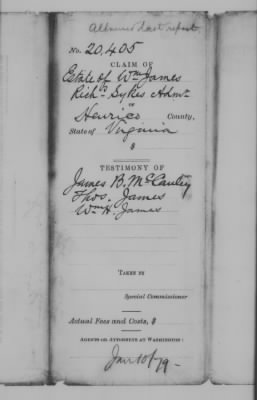 Allowed last report
No. 20,405
CLAIM OF
Estate of Wm James
Richd Sykes Admr
OF
Henrico County,
State of Virginia
$
TESTIMONY OF
James B. McCauley
Thos. James
Wm H. James
TAKEN BY
Special Commissioner
Actual Fees and Costs, $
AGENTS OR ATTORNEYS AT WASHINGTON:
Jan 10/79-